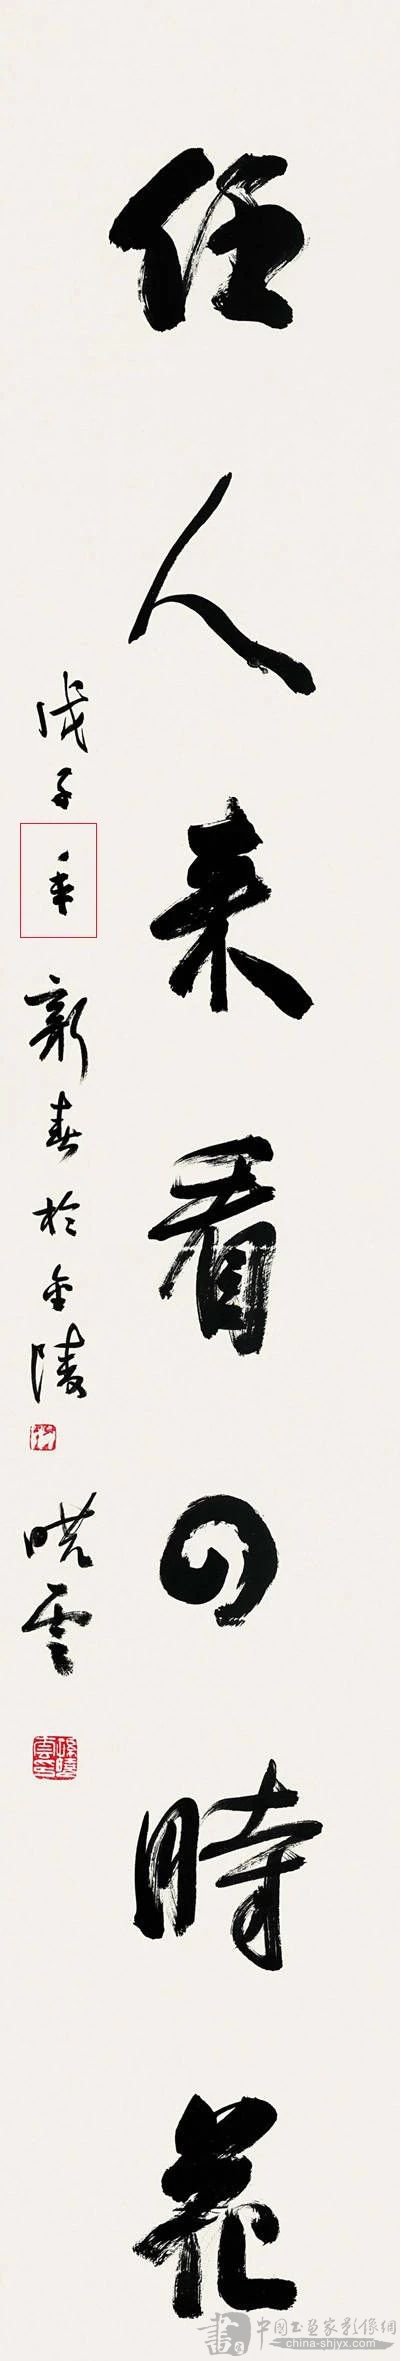 任人来看四時花
戊子年新春於金陵
晓雲
中国书画家影像網
china-shjyx.com